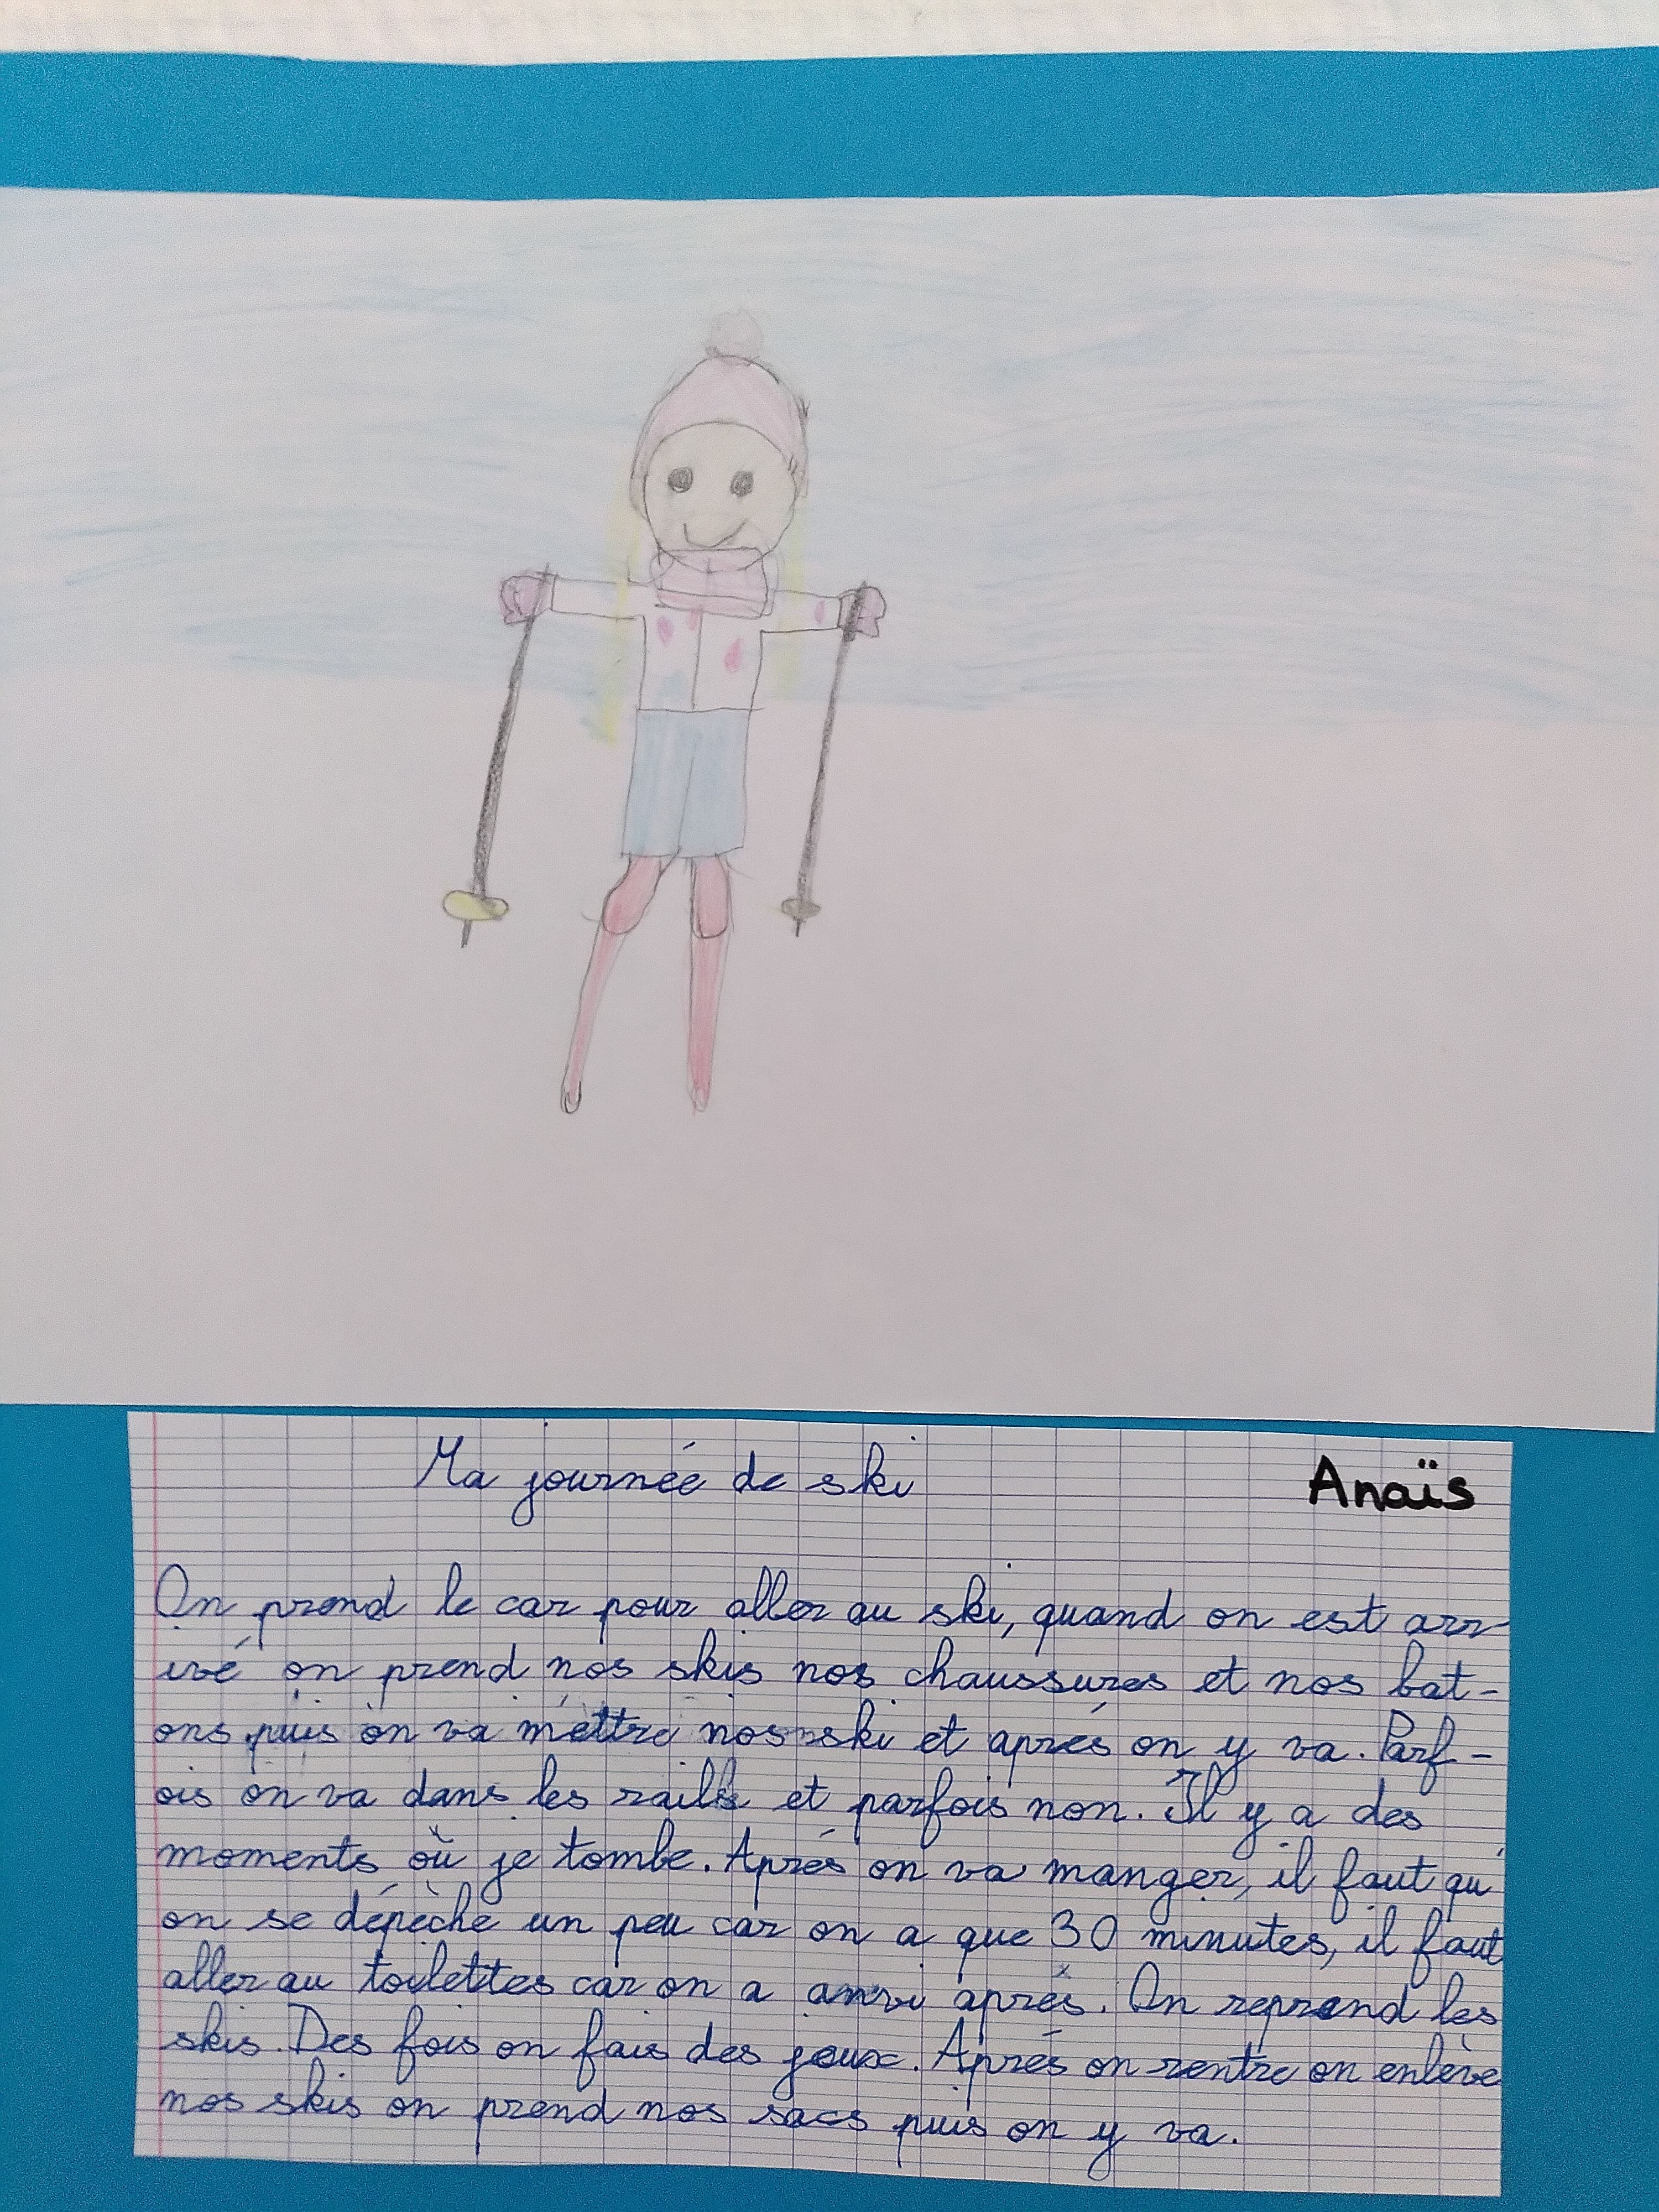 Ma journée de ski
Anaïs
On prend le car pour aller au ski, quand on est arr
ivé on prend nos skis nos chaussures et nos bat-
ons puis on va mettre nos ski et aprés on y va. Parf-
ois on va dans les rails et parfois non. Il y a des
moments où je tombe. Aprés on va manger, il faut qu'
on se dépèche un peu car on a que 30 minutes, il faut
aller au toilettes car on a anvi aprés. On reprend les
skis. Des fois on fais des jeux. Aprés on rentre on enlève
nos skis on prend nos sacs puis on y va.